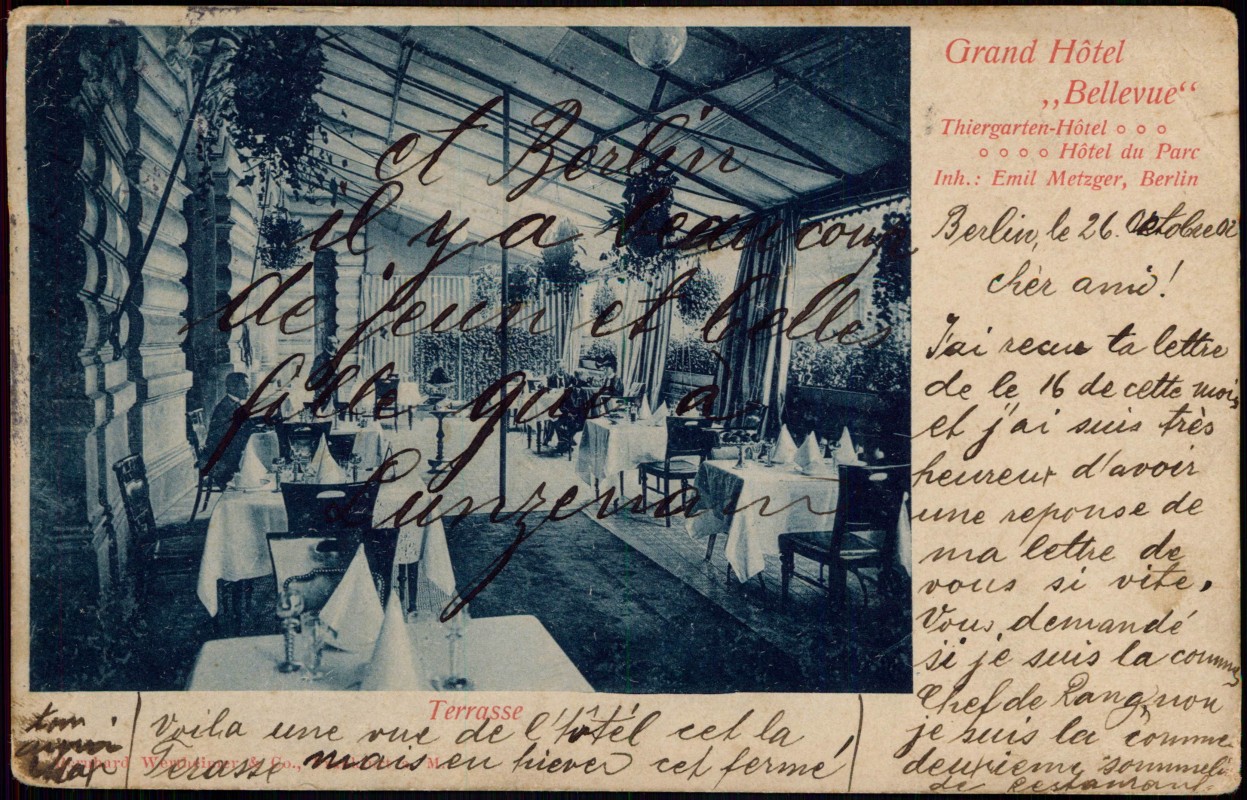 Grand Hôtel
„Bellevue“
Thiergarten-Hôtel o o o
o o o o Hôtel du Parc
Inh.: Emil Metzger, Berlin
Berlin, le 26. Octobre 02
cher ami!
J'ai recu ta lettre
de le 16 de cette mois
et j'ai suis très
heureux d'avoir
une reponse de
ma lettre de
vous si vite.
Vous demandé
si je suis la comme
Chef de Rang, non
je suis la comme
deuxieme sommeli
de restaurant.
et Berlin
il y a beaucoup
de jeun et belles
fille que à
Terrasse
Voila une vue de l'hôtél cet la
Terasse mais en hiever cet fermé
ton